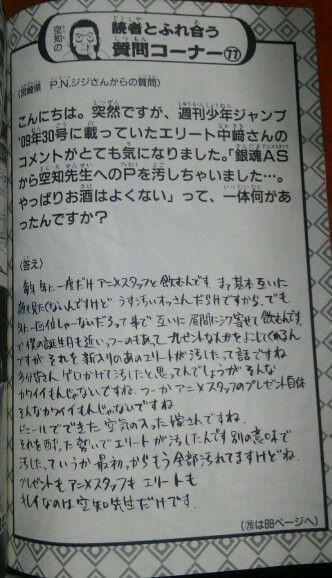 空知の
読者とふれ合う
質問コーナー㊆
〈宮崎県 P.N.ジジさんからの質問〉
こんにちは。突然ですが、週刊少年ジャンプ
'09年30号に載っていたエリート中﨑さんの
コメントがとても気になりました。「銀魂AS
から空知先生へのPを汚しちゃいました…。
やっぱりお酒はよくない」って、一体何があ
ったんですか？
〈答え〉
毎年に一度だけアニメスタッフと飲むんです。まァ基本互いに
顔も見たくないんですけど うす汚いオッさんだらけですから、でも
年に一回位しゃーないだろって事で互いに眉間にシワ寄せて飲むんです
で僕の誕生日も近いっつーのもあって プレゼントなんかをよこしてくれるん
ですが それを新入りのあのエリートが汚したって話ですね
多分皆さん ゲロかけて汚したと思ってんでしょうが そんな
カワイイもんじゃないですね。つーか アニメスタッフのプレゼント自体
そんなカワイイもんじゃないですね
ビニールでできた 空気の入った嫁さんですね。
それを酔った勢いでエリートが汚したんです 別の意味で
汚した、ていうか 最初からもう全部汚れてますけどね。
プレゼントも アニメスタッフも エリートも
キレイなのは空知先生だけです。
(㊆は88ページへ)